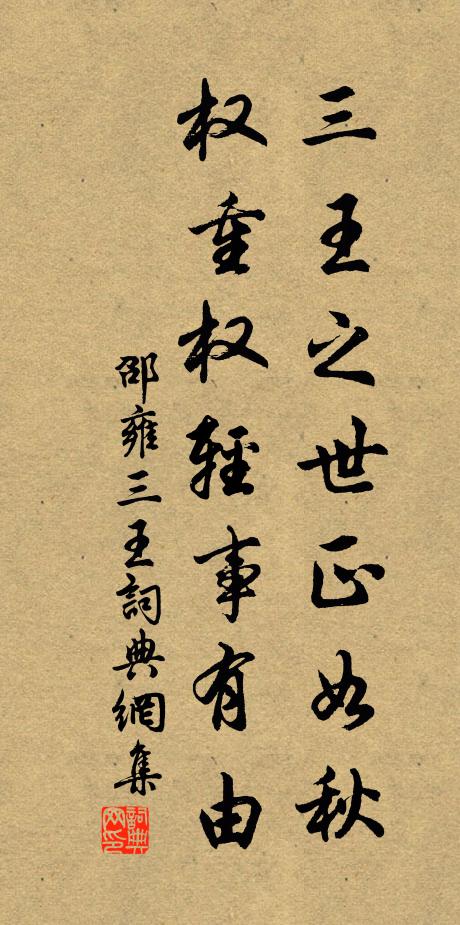 三王之世正如秋
权重权轻事有由
邵雍三王詞典網集
詞典网印